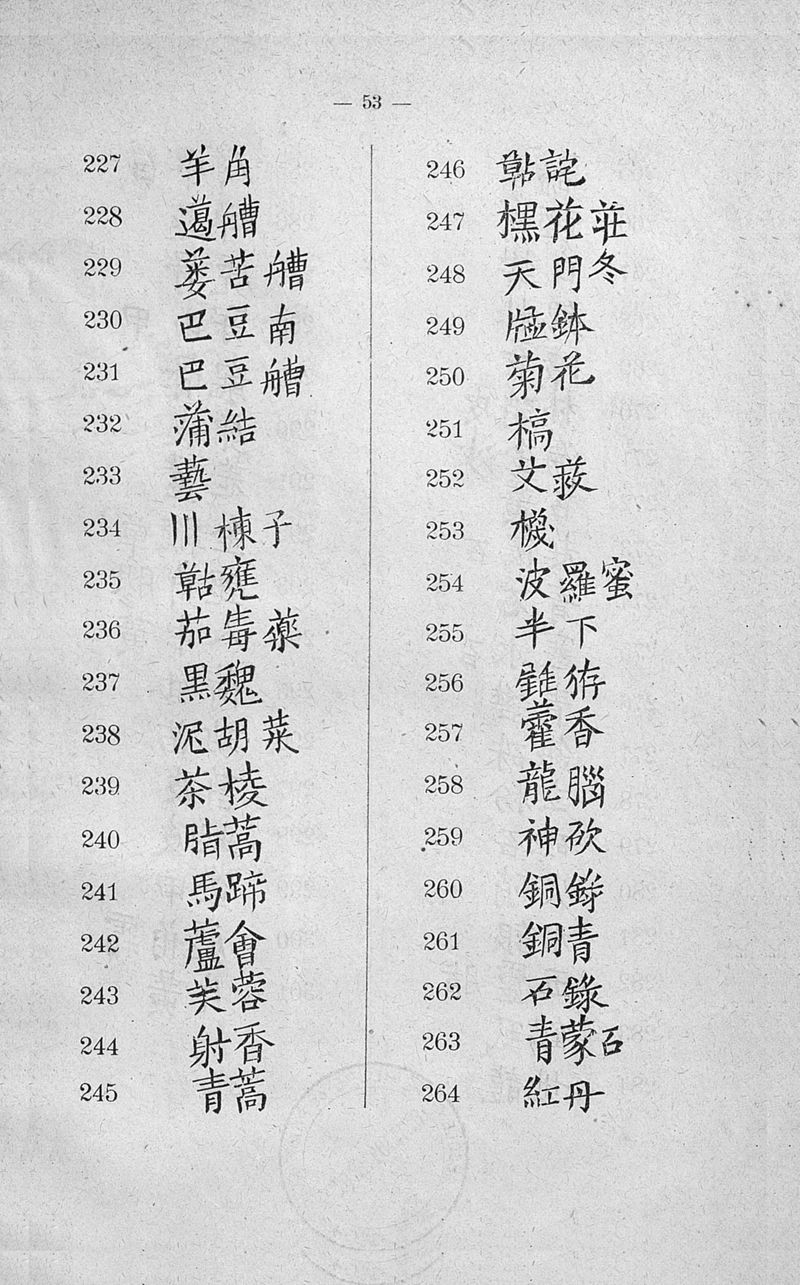 — 53 —
227 羊角
228 薖艚
229 蒌苦艚
230 巴豆南
231 巴豆艚
232 蒲結
233 藝
234 川楝子
235 雍
236 茄毒藥
237 黑魏
238 泥胡菜
239 茶棱
240 脂蒿
241 馬蹄
242 蘆會
243 芙蓉
244 射香
245 青蒿
246 詫
247 花莊
248 天門冬
249 鉢
250 菊花
251 槁
252 艾蔱
253 機
254 波羅蜜
255 半下
256
257 藿香
258 龍腦
259 神砍
260 銅
261 銅青
262 石錄
263 青蒙石
264 紅丹